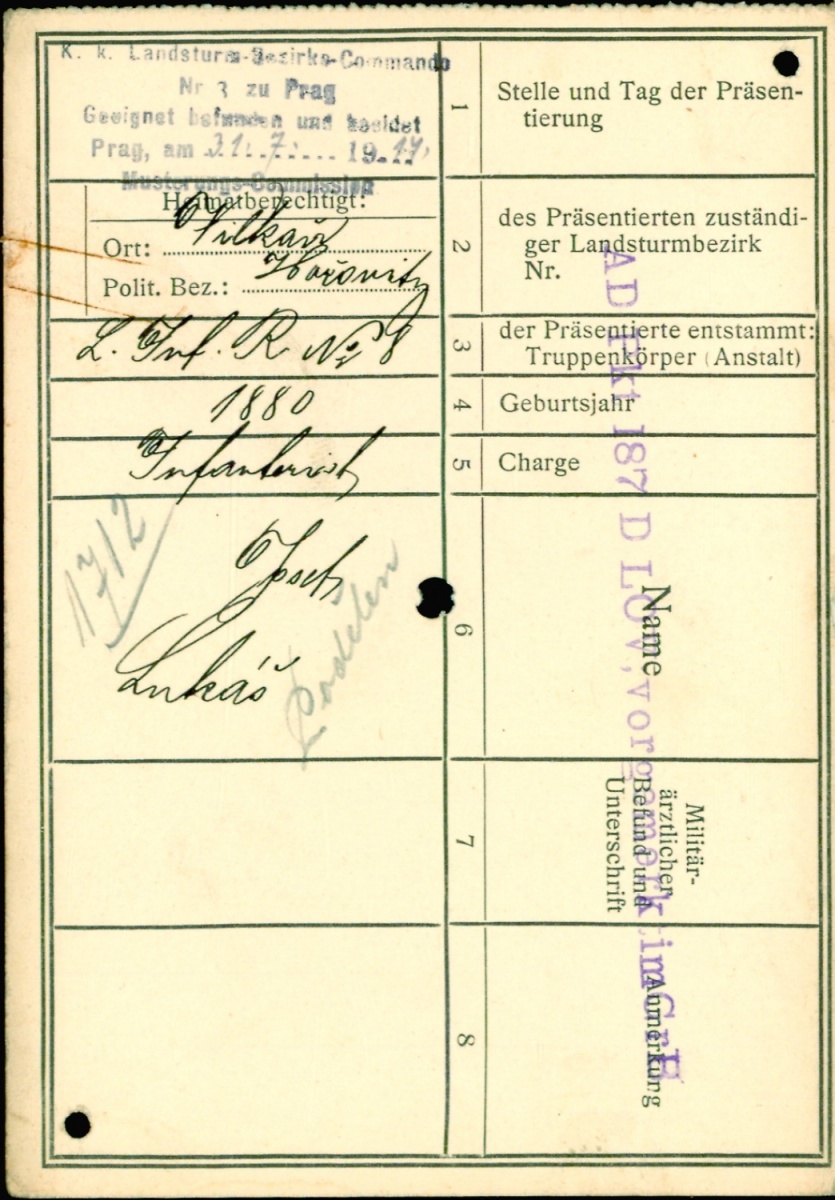 K. k. Landsturm-Bezirks-Commando
Nr 3 zu Prag
Geeignet befunden und beeidet
Prag, am 31. 7. 1914.
Musterungs-Commission
1
Stelle und Tag der Präsen-
tierung
Heimatberechtigt:
Ort:
Polit. Bez.: Hořovitz
2
des Präsentierten zuständi-
ger Landsturmbezirk
Nr.
L. Inf. R. No 8
3
der Präsentierte entstammt:
Truppenkörper (Anstalt)
1880
4
Geburtsjahr
Infanterist
5
Charge
1712
Josef
Lukáš
6
Name
7
Militär-
ärztlicher
Befund und
Unterschrift
8
Anmerkung
AD Pkt 187 D LOV, vorgemerkt im GrB